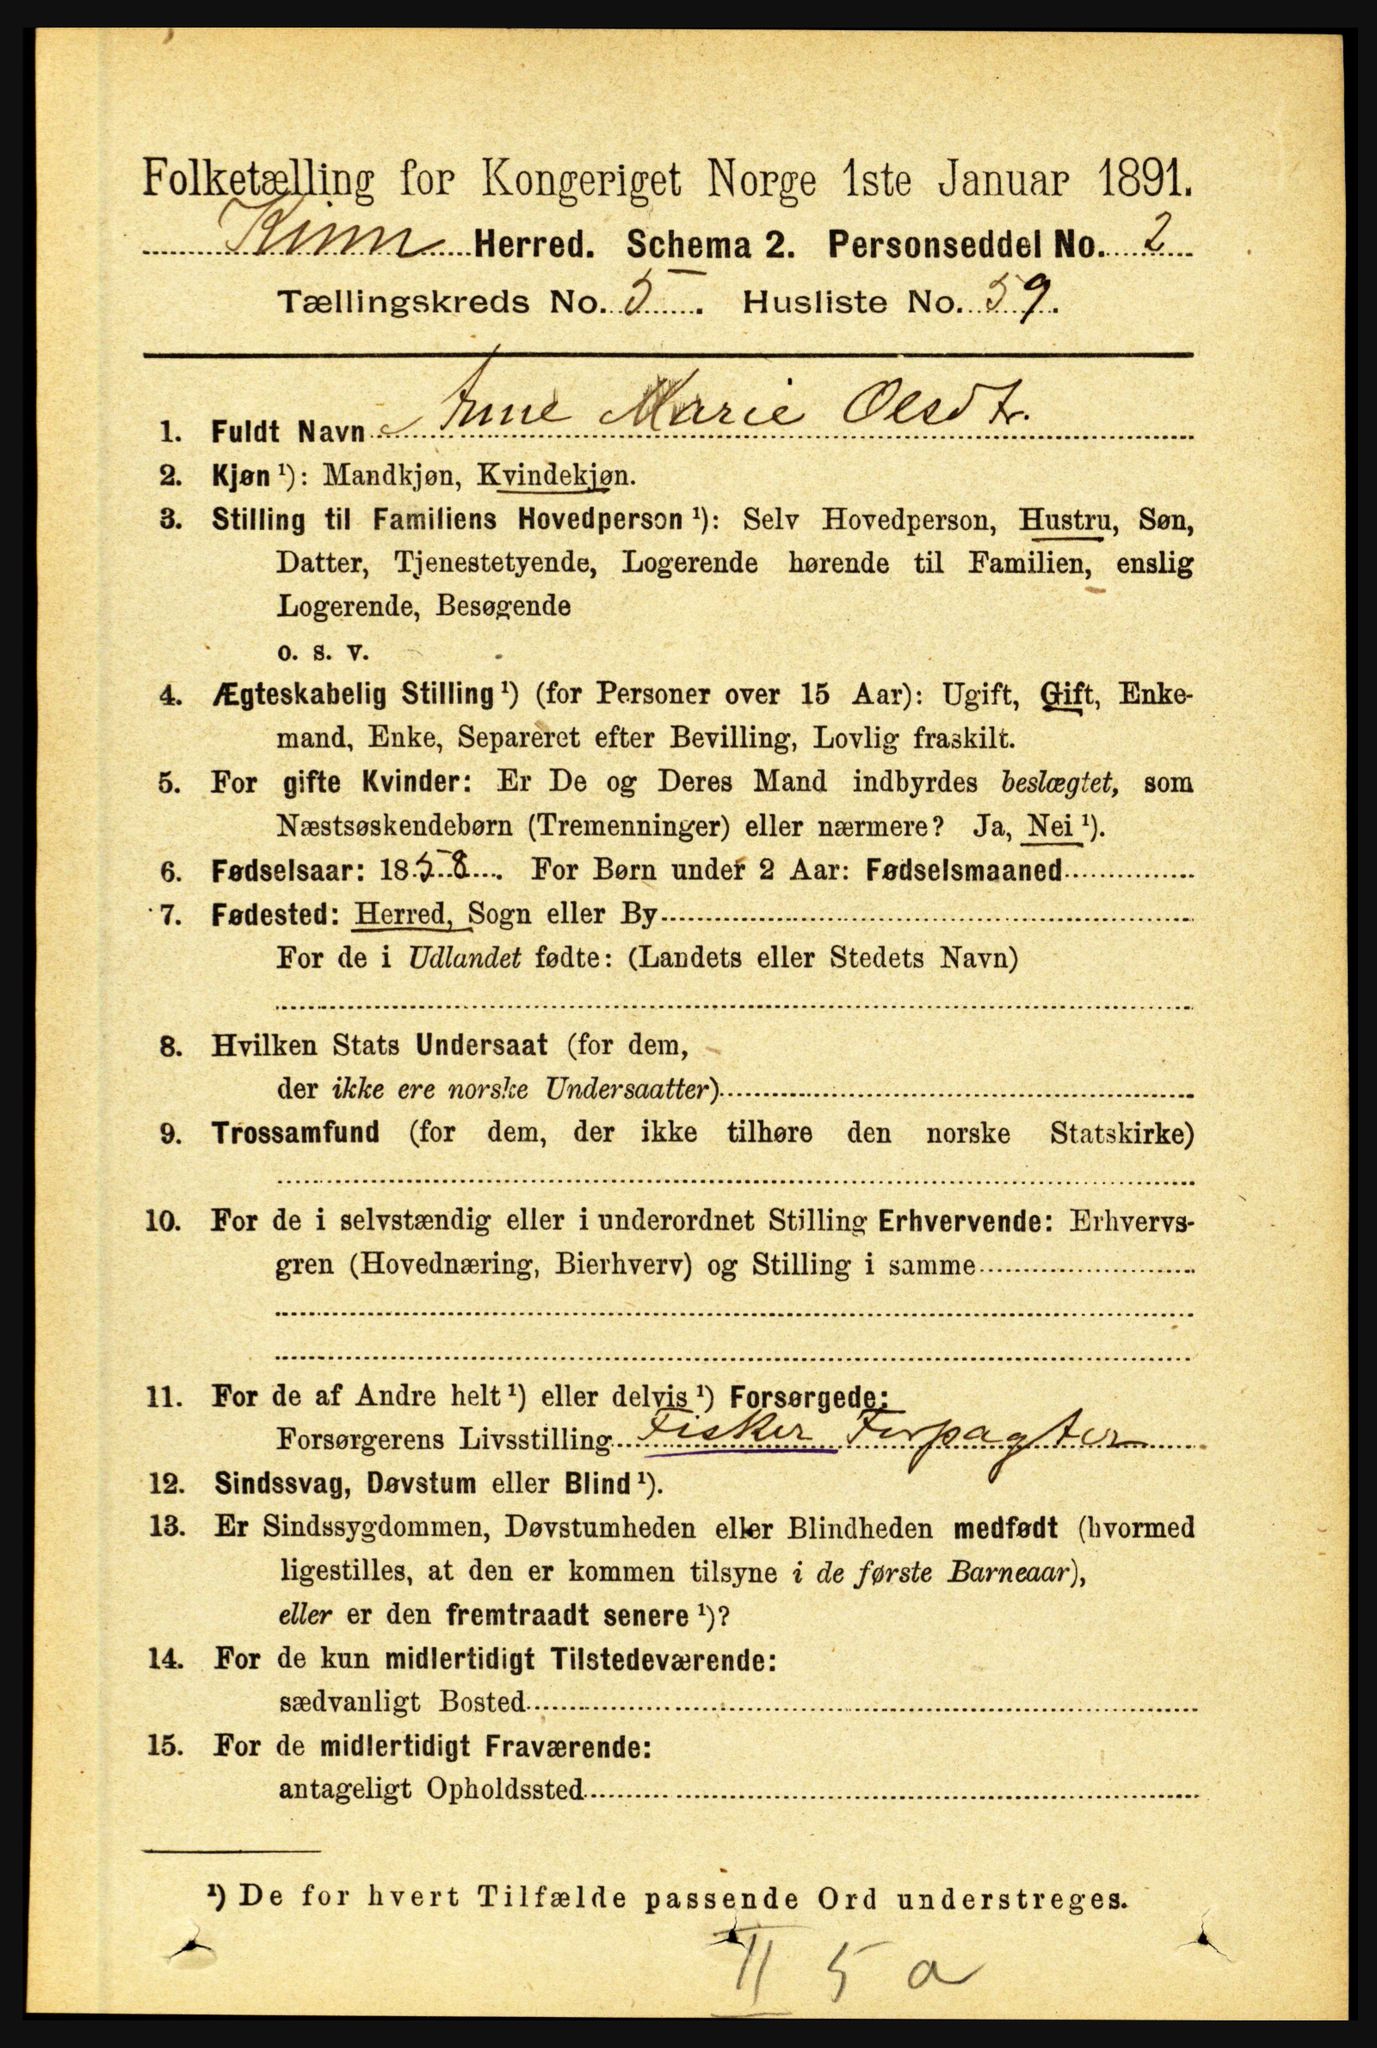 Folketælling for Kongeriget Norge 1ste Januar 1891.
Kinn Herred. Schema 2. Personseddel No. 2
Tællingskreds No. 5. Husliste No. 59.
1. Fuldt Navn Anne Marie Olsdtr.
2. Kjøn ¹): Mandkjøn, Kvindekjøn.
3. Stilling til Familiens Hovedperson ¹): Selv Hovedperson, Hustru, Søn,
Datter, Tjenestetyende, Logerende hørende til Familien, enslig
Logerende, Besøgende
o. s. v.
4. Ægteskabelig Stilling ¹) (for Personer over 15 Aar): Ugift, Gift, Enke-
mand, Enke, Separeret efter Bevilling, Lovlig fraskilt.
5. For gifte Kvinder: Er De og Deres Mand indbyrdes beslægtet, som
Næstsøskendebørn (Tremenninger) eller nærmere? Ja, Nei ¹).
6. Fødselsaar: 1858. For Børn under 2 Aar: Fødselsmaaned
7. Fødested: Herred, Sogn eller By
For de i Udlandet fødte: (Landets eller Stedets Navn)
8. Hvilken Stats Undersaat (for dem,
der ikke ere norske Undersaatter)
9. Trossamfund (for dem, der ikke tilhøre den norske Statskirke)
10. For de i selvstændig eller i underordnet Stilling Erhvervende: Erhvervs-
gren (Hovednæring, Bierhverv) og Stilling i samme
11. For de af Andre helt ¹) eller delvis ¹) Forsørgede:
Forsørgerens Livsstilling Fisker Forpagter
12. Sindssvag, Døvstum eller Blind ¹).
13. Er Sindssygdommen, Døvstumheden eller Blindheden medfødt (hvormed
ligestilles, at den er kommen tilsyne i de første Barneaar),
eller er den fremtraadt senere ¹)?
14. For de kun midlertidigt Tilstedeværende:
sædvanligt Bosted
15. For de midlertidigt Fraværende:
antageligt Opholdssted
¹) De for hvert Tilfælde passende Ord understreges.
II 5 a